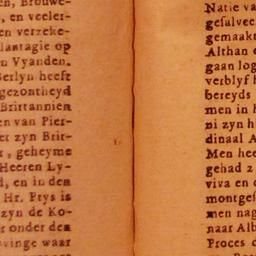 en, Brouwe-
, en veeler-
en verzeke-
lantagie op
n Vyanden.
Berlyn heeft
gezontheyd
Brittannien
en van Pier-
er zyn Brit-
r, geheyme
Heeren Ly-
d, en in den
Hr. Prys is
zyn de Ko-
r onder den
ovinge waar
Natie va
gesalveer
gemaakt
Althan e
gaan log
verblyf h
bereyds
men in h
ni zyn h
dinaal A
Men hee
gehad z
viva en
montgef
men nag
naar Alb
Proces d